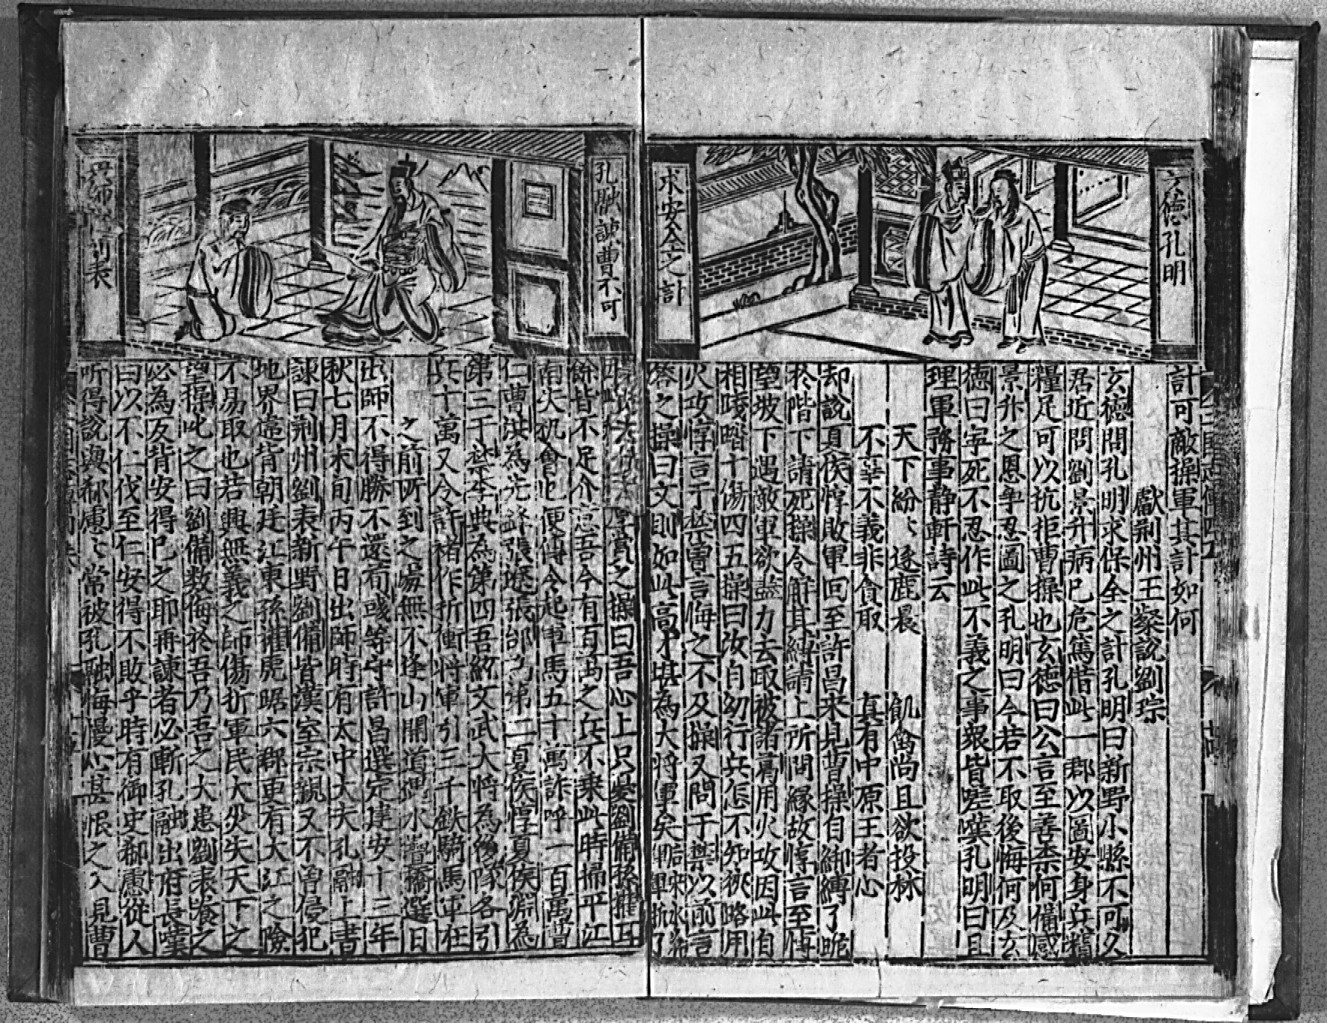 玄德孔明
求安全之計
計可敵操軍其計如何
獻荆州王粲說劉琮
玄德問孔明求保全之計孔明曰新野小縣不可久
君近聞劉景升病已危篤借此一郡以圖安身兵精
糧足可以抗拒曹操也玄德曰公言至善柰何備感
景升之恩争忍圖之孔明曰今若不取後悔何及玄
德曰寜死不忍作此不義之事衆皆嗟嘆孔明曰且
理軍務事静軒詩云
天下紛〻逐鹿晨 飢禽尚且欲投林
不華不義非食取 真有中原王者心
却說夏侯惇敗軍回至許昌來見曹操自綁縛了跪
於階下請死操令觧其縛請上所問縁故惇言至博
望坡下遇敵軍欲盡力去取被諸葛用火攻因此自
相踐踏十傷四五操曰汝自幼行兵怎不知狹路用
火攻惇言于禁曽言悔之不及操又問于禁以前言
答之操曰文則如此高才堪為大將軍矣
厚賞之操曰吾心上只憂劉備孫權耳
餘皆不足介意吾今有百萬之兵不乘此時掃平江
南失機會也便傳令起軍馬五十萬詐呼一百萬曹
仁曹洪為先鋒張遼張郃為第二夏侯惇夏侯淵為
第三于禁李典為第四吾統文武大將為後隊各引
兵十萬又令許褚作折衝將軍引三千鉄騎馬軍在
之前所到之處無不逢山開道遇水疊橋選日
出師不得勝不還荀彧等守許昌選定建安十三年
秋七月末旬丙午日出師時有太中大夫孔融上書
諫曰荆州劉表新野劉備皆漢室宗親又不曽侵犯
地界遠背朝廷江東孫權虎踞六郡更有大江之險
不易取也若興無義之師傷折軍民大失天下之
望操叱之曰劉備数侮於吾乃吾之大患劉表養之
必為友背安得已之耶再諫者必斬孔融出府長嘆
曰以不仁伐至仁安得不敗乎時有御史郗慮從人
听得說與郗慮〻常被孔融侮慢心甚恨之入見曹
孔融諫曹不可